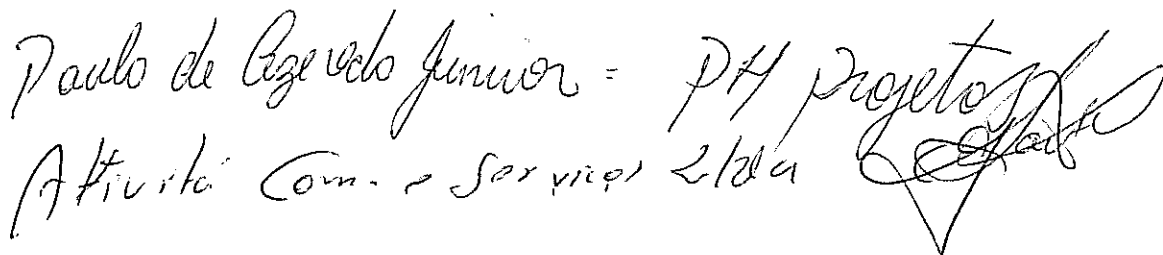 Paulo de Azevedo Junior = PH Projetos
Ativitá Com. e Serviços Ltda